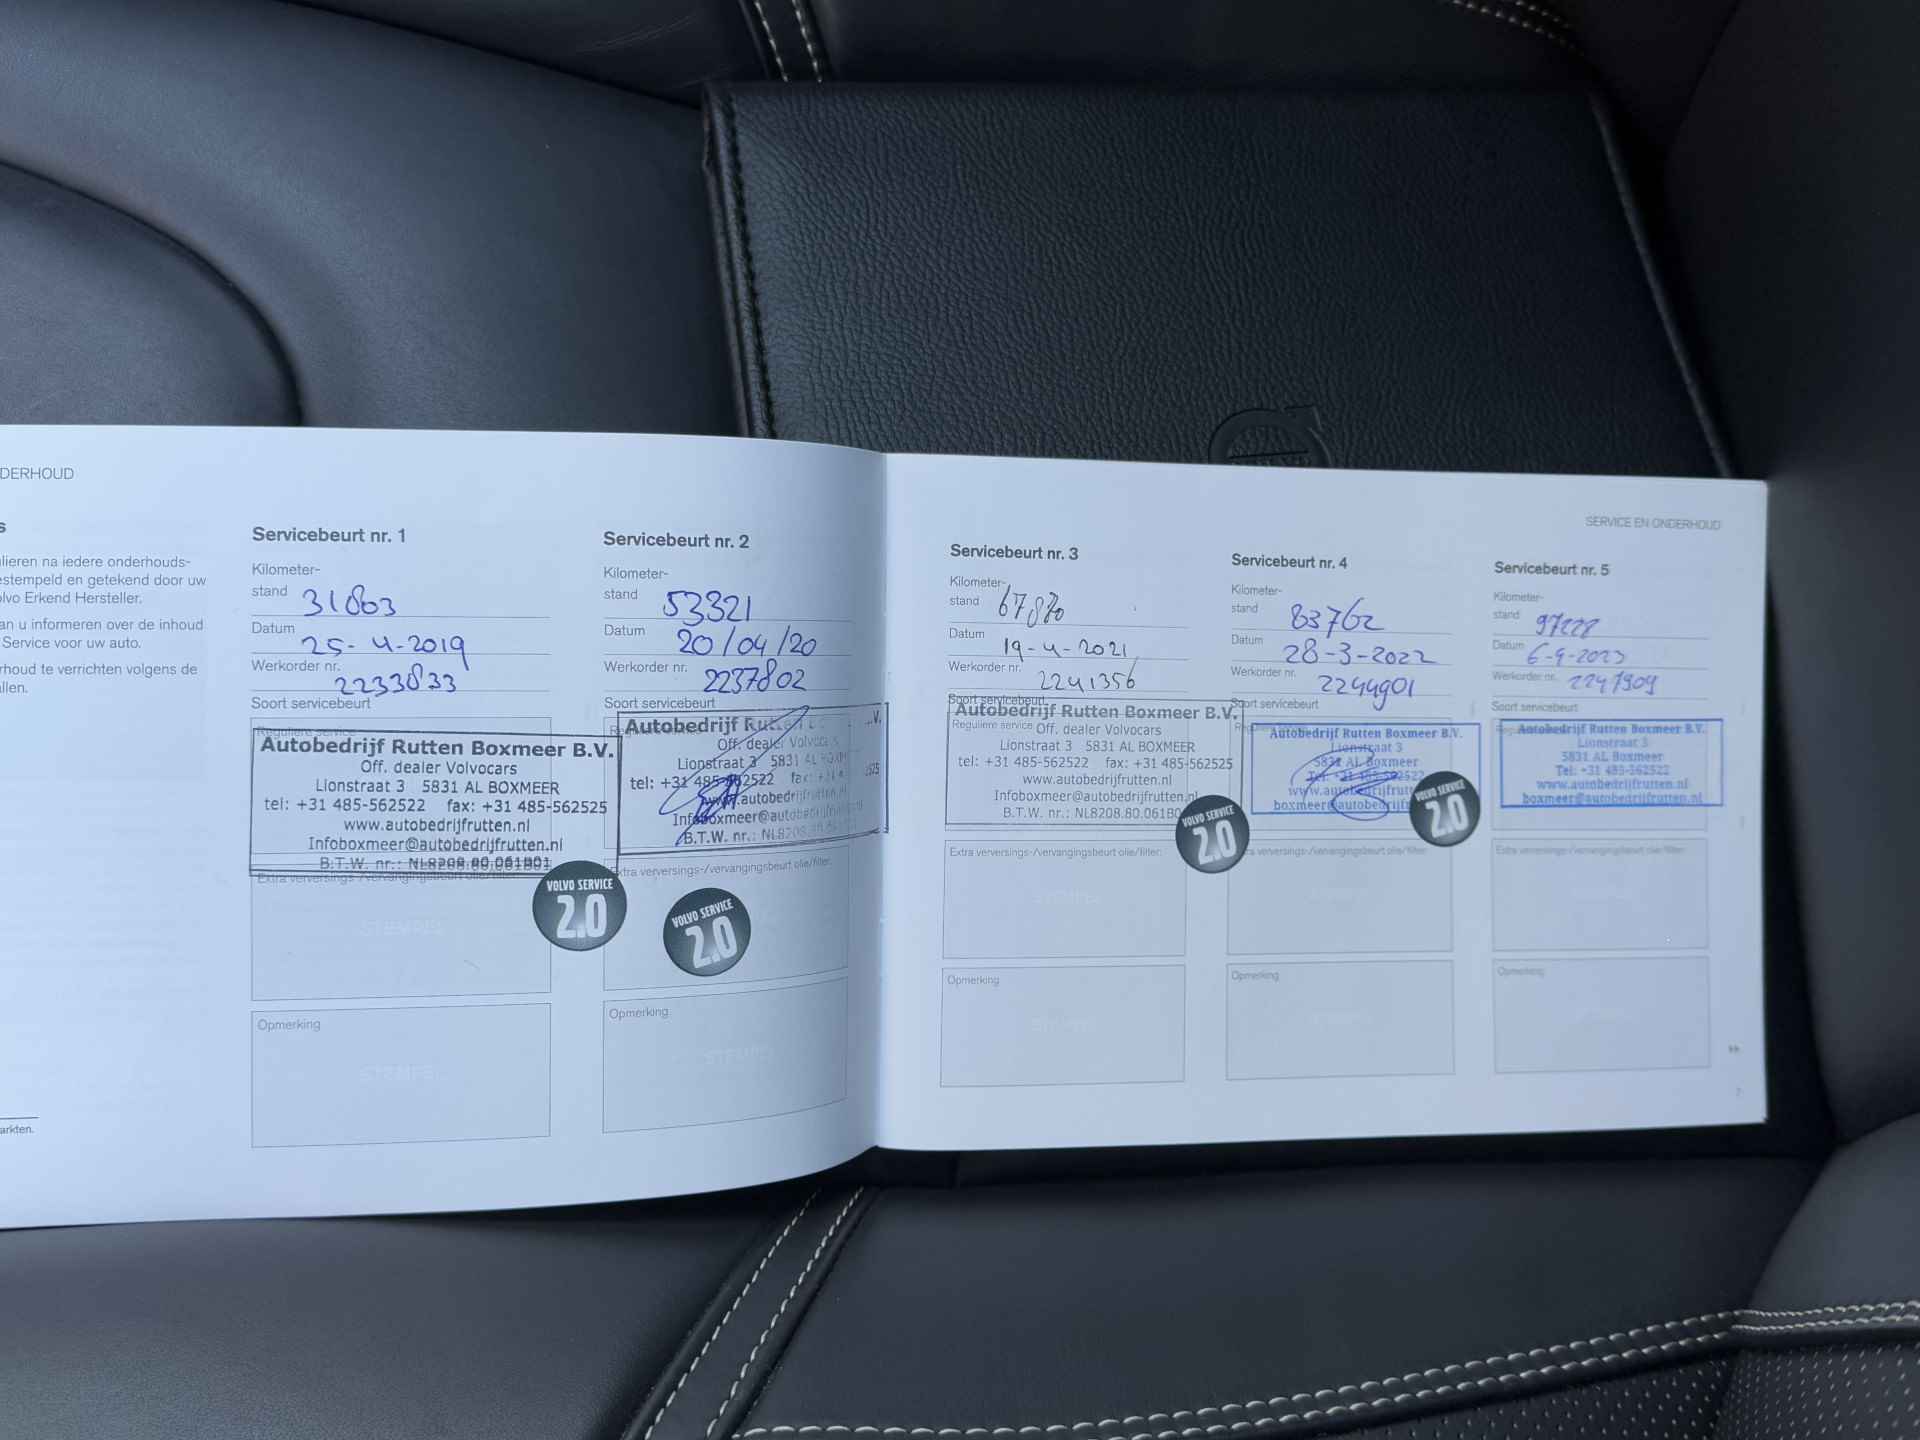 DERHOUD
s
lieren na iedere onderhouds-
estempeld en getekend door uw
lvo Erkend Hersteller.
an u informeren over de inhoud
Service voor uw auto.
rhoud te verrichten volgens de
llen.
arkten.
Servicebeurt nr. 1
Kilometer-
stand 31863
Datum 25-4-2019
Werkorder nr. 2233833
Soort servicebeurt
Reguliere service
Autobedrijf Rutten Boxmeer B.V.
Off. dealer Volvocars
Lionstraat 3 5831 AL BOXMEER
tel: +31 485-562522 fax: +31 485-562525
www.autobedrijfrutten.nl
Infoboxmeer@autobedrijfrutten.nl
B.T.W. nr.: NL8208.80.061B01
Extra verversings-/vervangingsbeurt olie/filter.
STEMPEL
VOLVO SERVICE
2.0
Opmerking
STEMPEL
Servicebeurt nr. 2
Kilometer-
stand 53321
Datum 20/04/20
Werkorder nr. 2237802
Soort servicebeurt
Autobedrijf Rutten B.V.
Off. dealer Volvocars
Lionstraat 3 5831 AL BOXM
tel: +31 485-562522 fax: +31 4 2525
www.autobedrijfrutten.nl
Infoboxmeer@autobedrijfrutten
B.T.W. nr.: NL8208.80.061
Extra verversings-/vervangingsbeurt olie/filter.
VOLVO SERVICE
2.0
Opmerking
STEMPEL
SERVICE EN ONDERHOUD
Servicebeurt nr. 3
Kilometer-
stand 67870
Datum 19-4-2021
Werkorder nr. 2241356
Soort servicebeurt
Autobedrijf Rutten Boxmeer B.V.
Reguliere service
Off. dealer Volvocars
Lionstraat 3 5831 AL BOXMEER
tel: +31 485-562522 fax: +31 485-562525
www.autobedrijfrutten.nl
Infoboxmeer@autobedrijfrutten.nl
B.T.W. nr.: NL8208.80.061B0
VOLVO SERVICE
2.0
Extra verversings-/vervangingsbeurt olie/filter.
STEMPEL
Opmerking
STEMPEL
Servicebeurt nr. 4
Kilometer-
stand 83762
Datum 28-3-2022
Werkorder nr. 2244901
Soort servicebeurt
Autobedrijf Rutten Boxmeer B.V.
Lionstraat 3
5831 AL Boxmeer
Tel: +31 485-562522
www.autobedrijfrutt
boxmeer@autobedrijf
VOLVO SERVICE
2.0
Extra verversings-/vervangingsbeurt olie/filter.
Opmerking
Servicebeurt nr. 5
Kilometer-
stand 97228
Datum 6-9-2023
Werkorder nr. 2247909
Soort servicebeurt
Autobedrijf Rutten Boxmeer B.V.
Lionstraat 3
5831 AL Boxmeer
Tel: +31 485-562522
www.autobedrijfrutten.nl
boxmeer@autobedrijfrutten.nl
Extra verversings-/vervangingsbeurt olie/filter.
Opmerking
7